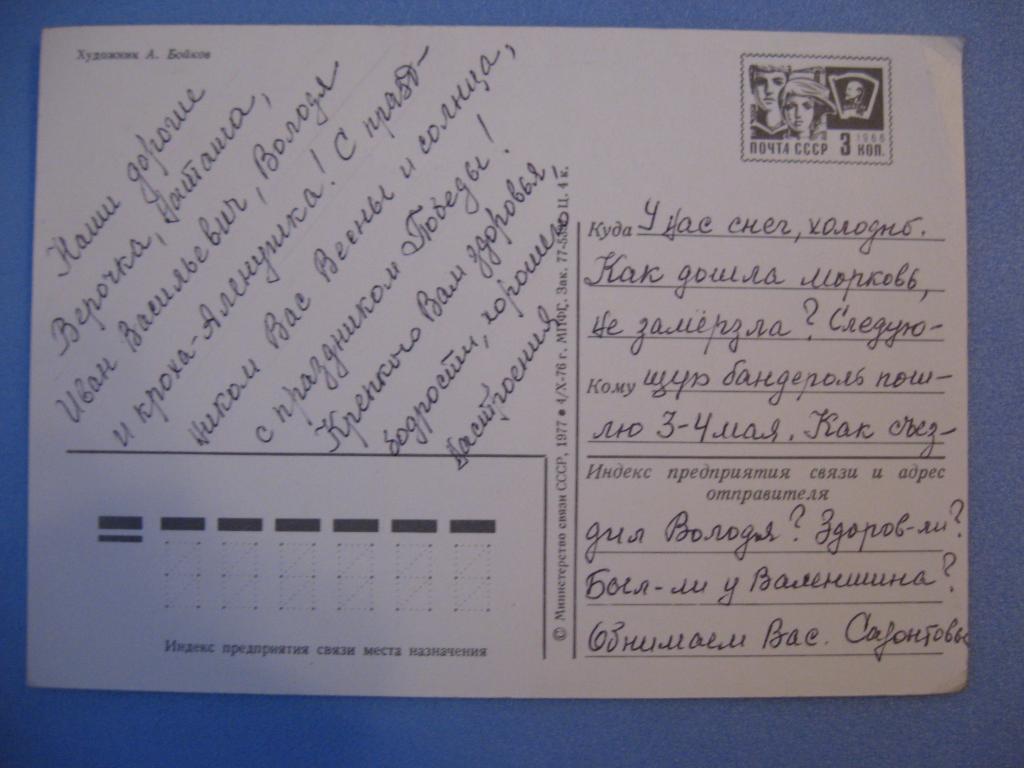 Художник А. Бойков
Наши дорогие
Верочка, Наташа,
Иван Васильевич, Володя
и кроха-Аленушка! С празд-
ником Вас Весны и солнца,
с праздником Победы!
Крепкого Вам здоровья
бодрости, хорошего
настроения
ПОЧТА СССР 3 КОП.
1966
© Министерство связи СССР, 1977 • 4/X-76 г. МПФГ. Зак. Ц. 4 к.
Куда У нас снег, холодно.
Как дошла морковь,
не замёрзла? Следую-
Кому щую бандероль пош-
лю 3-4 мая. Как съез-
Индекс предприятия связи и адрес
отправителя
дил Володя? Здоров-ли?
Был-ли у Валеншина?
Обнимаем Вас.
Индекс предприятия связи места назначения